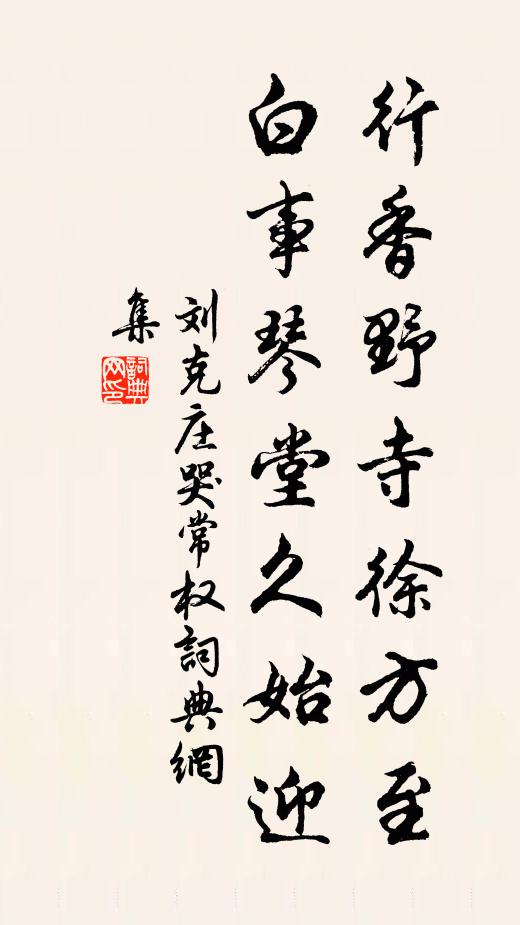 行香野寺徐方至
白事琴堂久始迎
刘克庄哭常权詞典網
集
詞典
网印